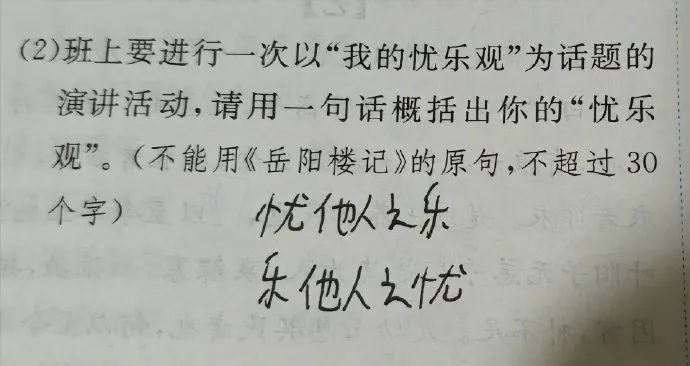 (2)班上要进行一次以“我的忧乐观”为话题的
演讲活动,请用一句话概括出你的“忧乐
观”。(不能用《岳阳楼记》的原句,不超过30
个字)
忧他人之乐
乐他人之忧